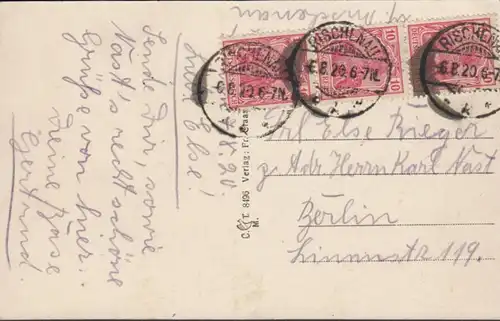 6.8.20.
Liebe Else!
Sende Dir, sowie
Nast's recht schöne
Grüße von hier.
Deine Base
Gertrud.
C. & T. 8496 Verlag: Fr.
M.
RISCHENAU
6.8.20.6-7N.
RISCHENAU
6.8.20.6-7N.
RISCHENAU
6.8.20.6-7N.
10 10
Frl Else Rieger
z. Adr Herrn Karl Nast
Berlin
Linienstr 119.